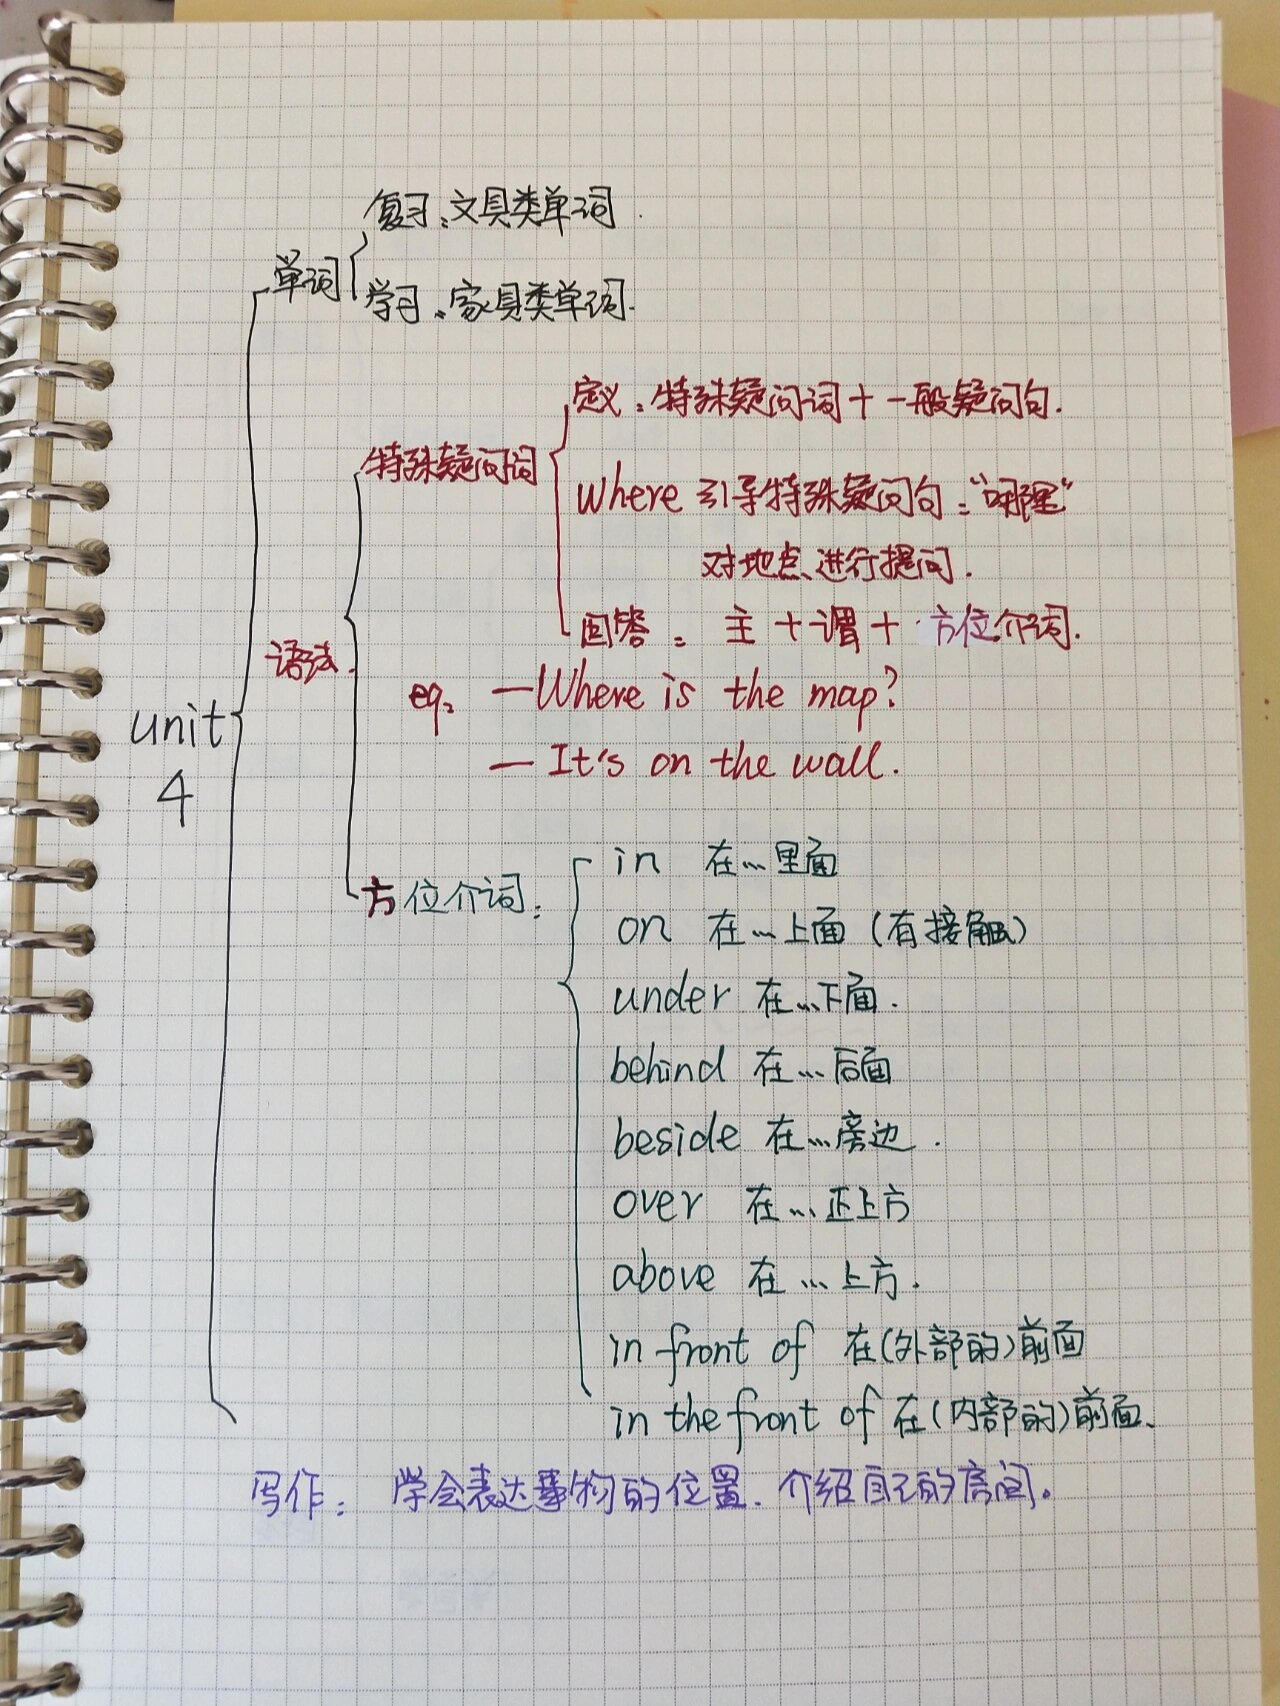 复习：文具类单词.
单词
学习：家具类单词.
定义：特殊疑问词+一般疑问句.
特殊疑问词
Where 引导特殊疑问句："哪里"
对地点进行提问.
回答： 主+谓+方位介词.
语法.
eg: —Where is the map?
— It's on the wall.
unit
4
in 在...里面
方位介词：
on 在...上面(有接触)
under 在...下面.
behind 在...后面
beside 在...旁边.
over 在...正上方
above 在...上方.
in front of 在(外部的)前面
in the front of 在(内部的)前面.
写作： 学会表达事物的位置. 介绍自己的房间。